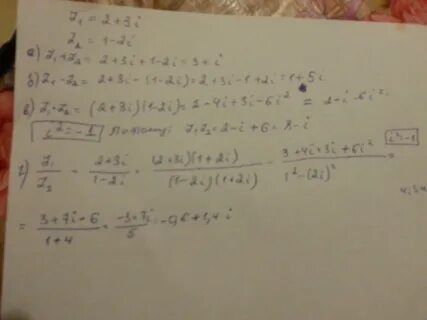 Z₁ = 2+3i
Z₂ = 1-2i
а) Z₁+Z₂ = 2+3i+1-2i = 3+i
б) Z₁-Z₂ = 2+3i-(1-2i) = 2+3i-1+2i = 1+5i
в) Z₁·Z₂ = (2+3i)(1-2i) = 2-4i+3i-6i² = 2-i-6i²
i² = -1 Z₁Z₂ = 2-i+6 = 8-i
г) Z₁/Z₂ = 2+3i/1-2i = (2+3i)(1+2i)/(1-2i)(1+2i) = 3+4i+3i+6i²/1²-(2i)² = i²=-1
= 3+7i-6/1+4 = -3+7i/5 = -0,6+1,4i